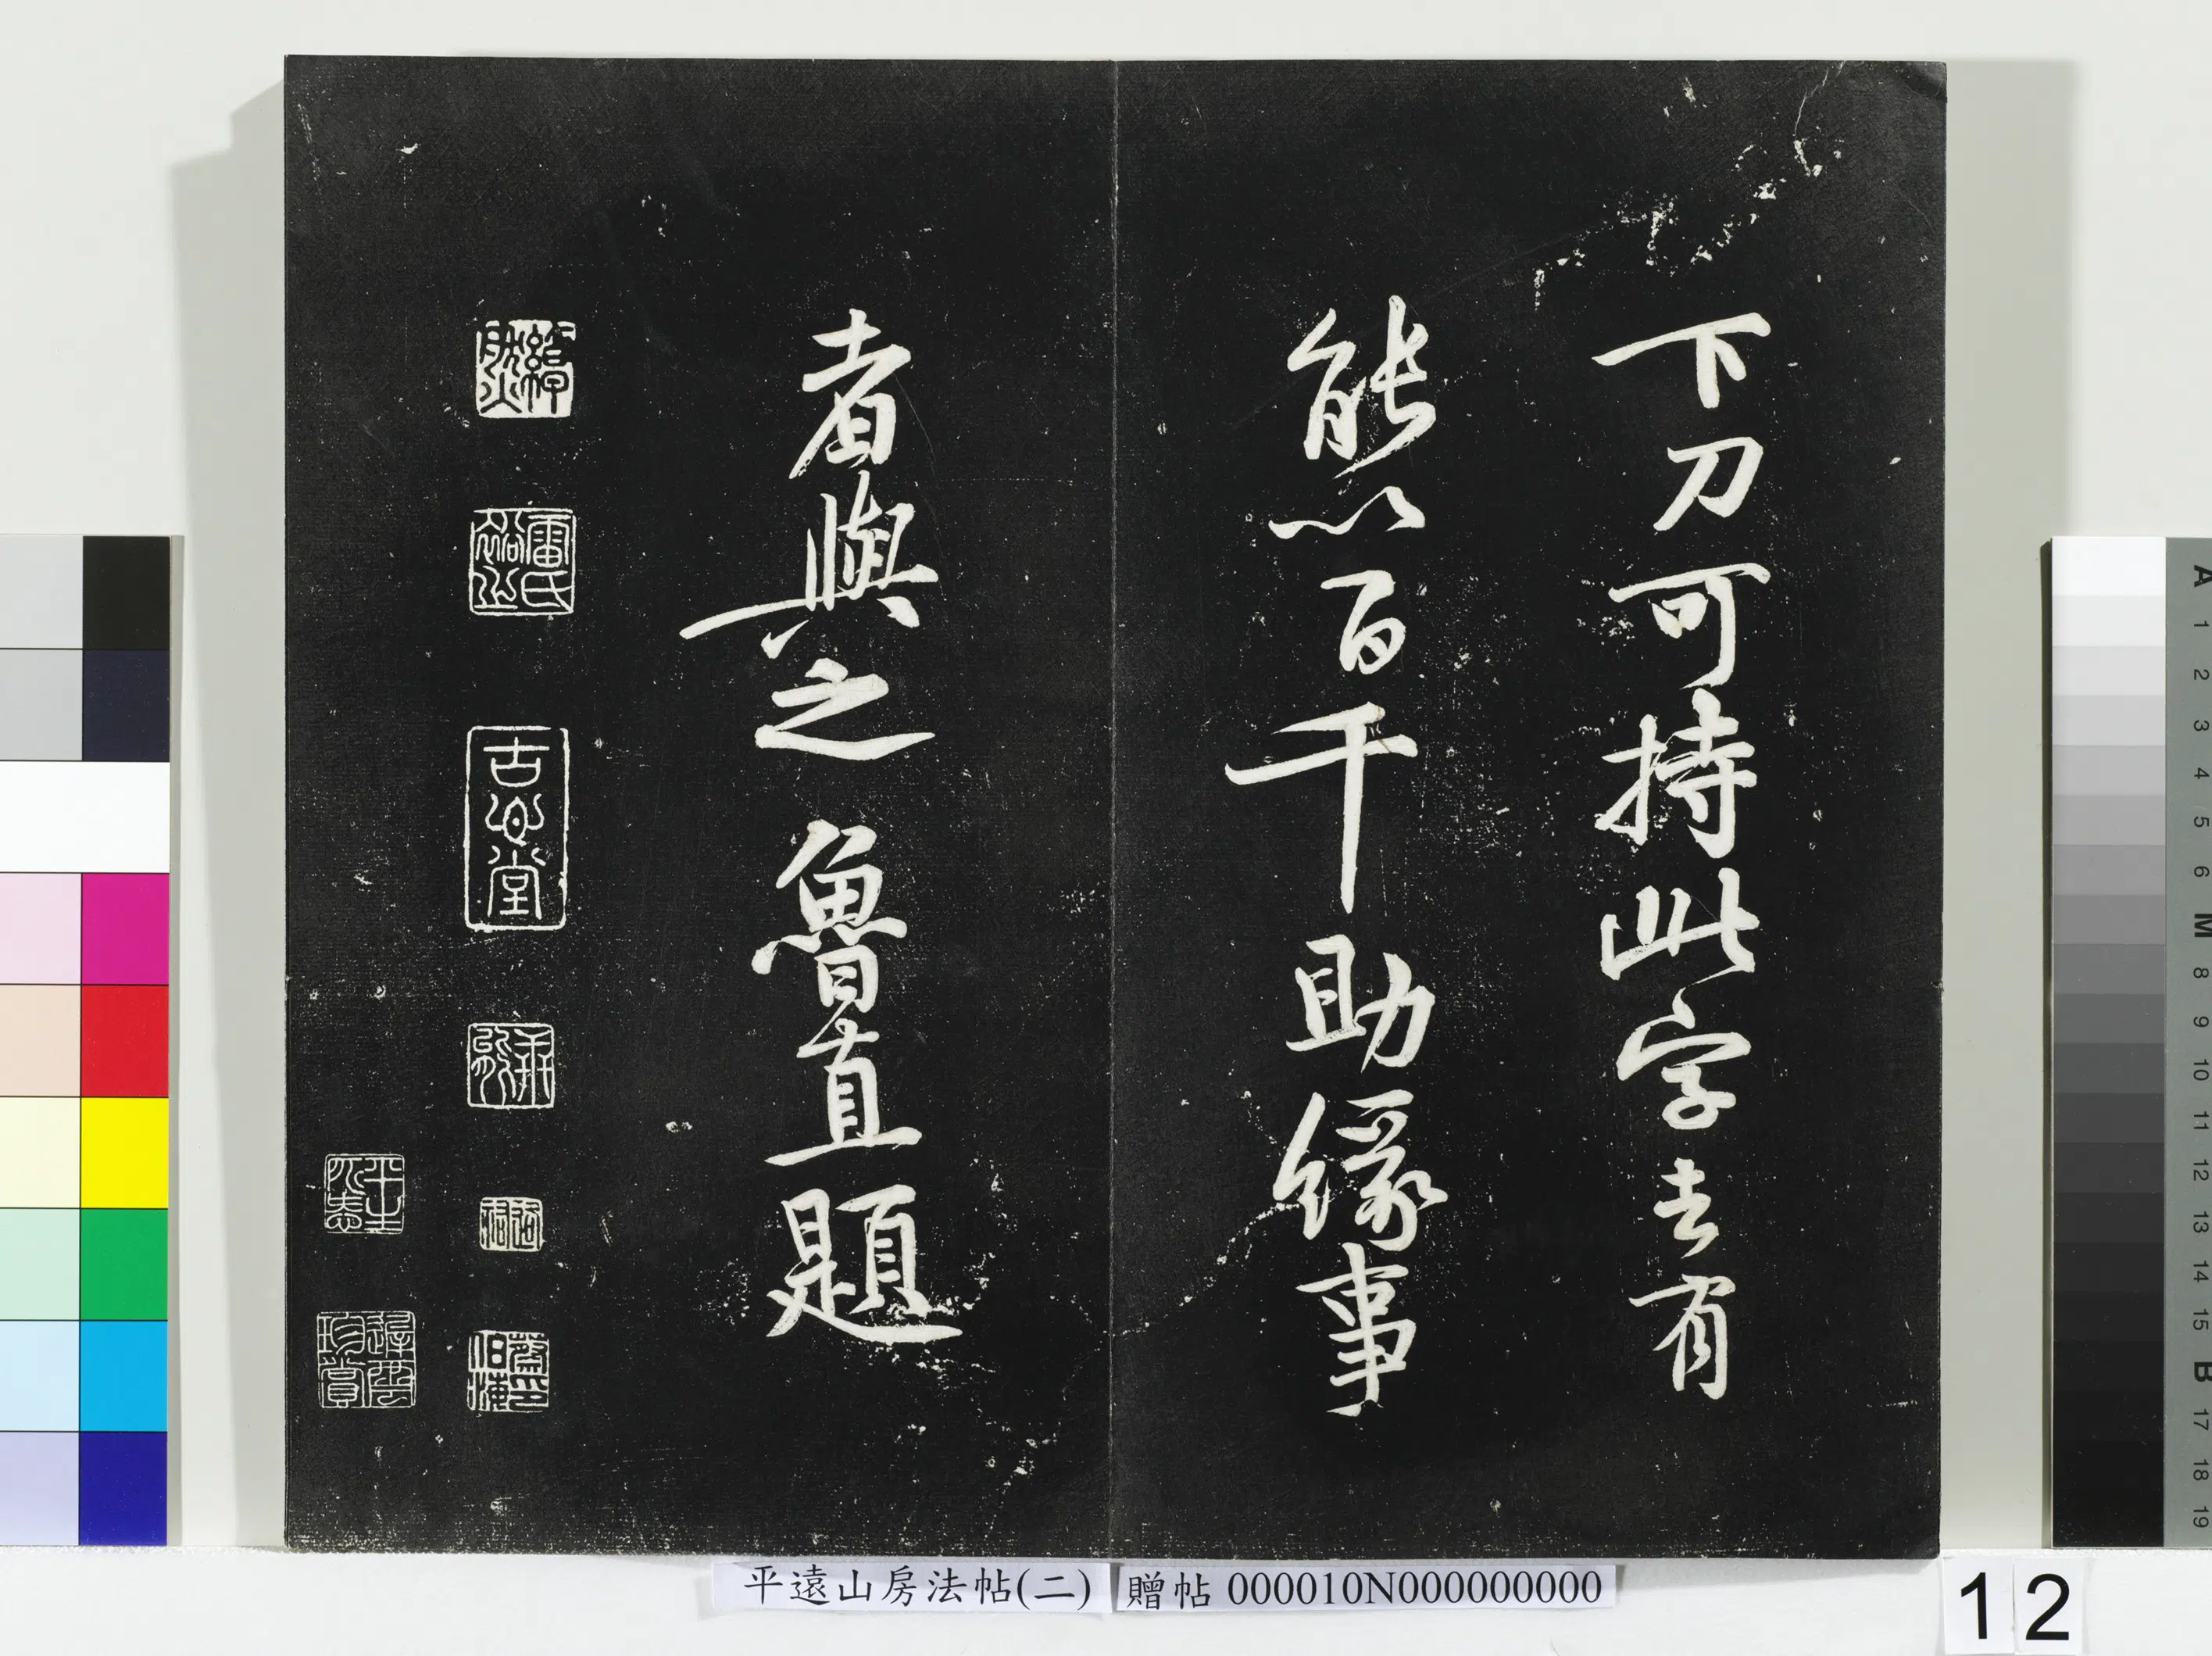 下刀可持此字去有
能以百千助緣事
者與之魯直題
雷氏
古心堂
平生
珍賞
平遠山房法帖(二)
贈帖 000010N000000000
12
A 1 2 3 4 5 6 M 8 9 10 11 12 13 14 15 B 17 18 19